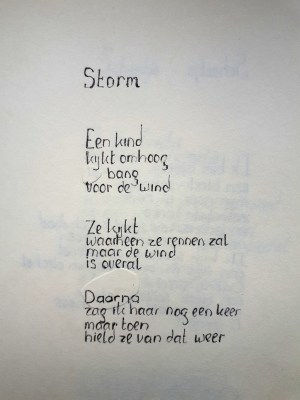 Storm
Een kind
kijkt omhoog
bang
voor de wind
Ze kijkt
waarheen ze rennen zal
maar de wind
is overal
Daarna
zag ik haar nog een keer
maar toen
hield ze van dat weer